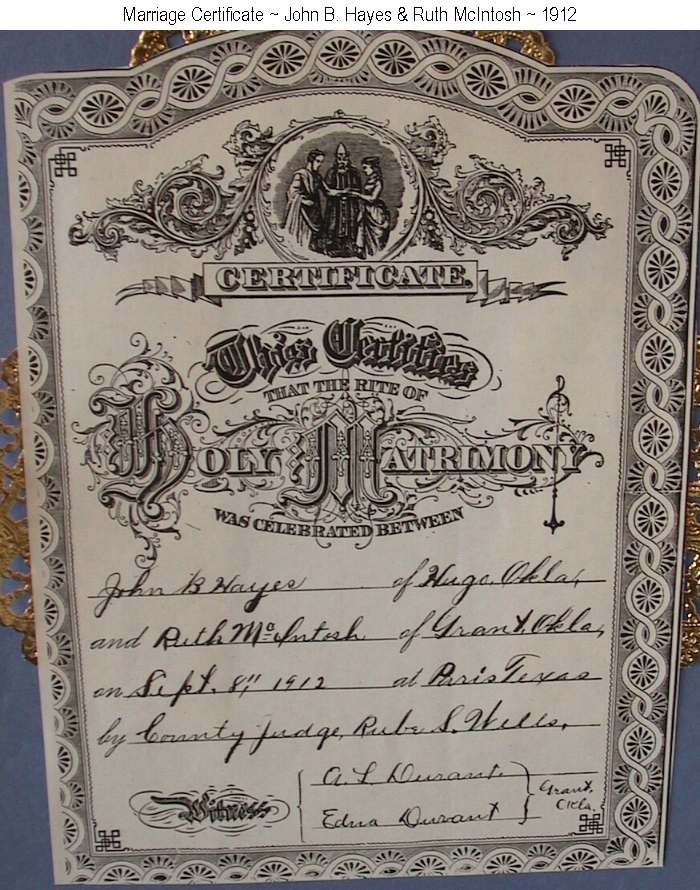 Marriage Certificate ~ John B. Hayes & Ruth McIntosh ~ 1912
CERTIFICATE.
This Certifies
THAT THE RITE OF
HOLY MATRIMONY
WAS CELEBRATED BETWEEN
John B Hayes of Hugo, Okla,
and Ruth McIntosh of Grant, Okla,
on Sept. 8", 1912 at Paris Texas
by County Judge, Rube S. Wells,
A. L. Durant.
Witness
Edna Durant
Grant,
Okla.